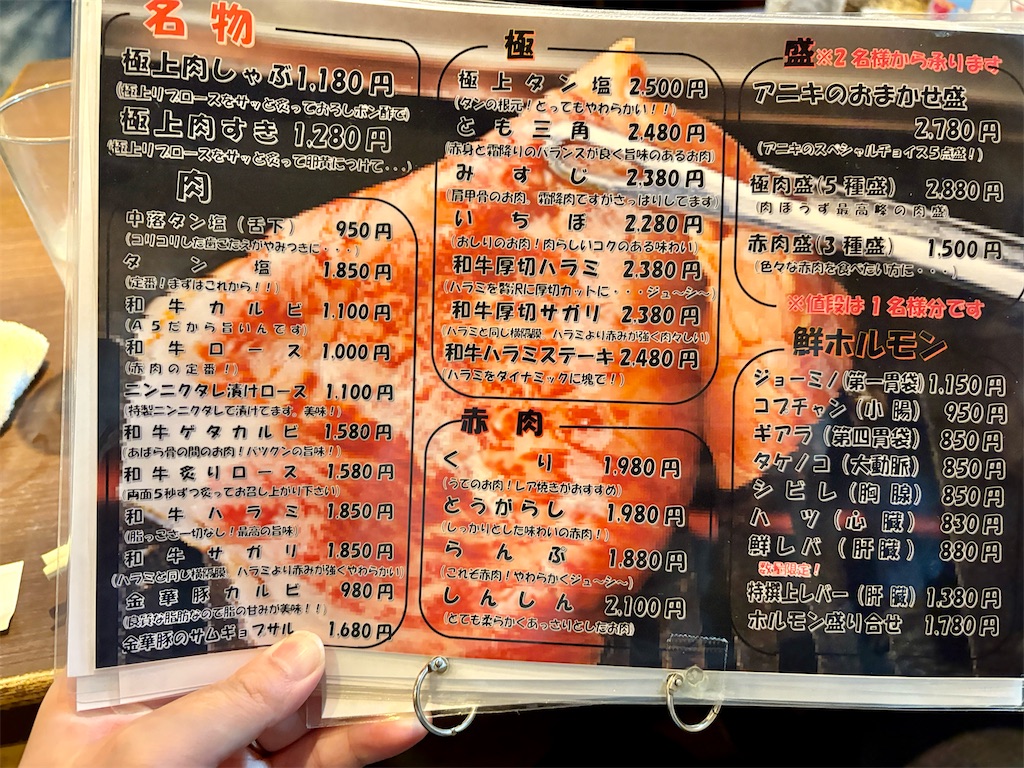 名物
極上肉しゃぶ1.180円
(極上リブロースをサッと炙っておろしポン酢で)
極上肉すき 1,280円
(極上リブロースをサッと炙って卵黄につけて...)
肉
中落タン塩(舌下) 950円
(コリコリした歯ごたえがやみつきに・・・)
タン塩 1.850円
(定番!まずはこれから!!)
和牛カルビ 1,100円
(A5だから旨いんです)
和牛ロース 1.000円
(赤肉の定番!)
ニンニクタレ漬けロース 1.100円
(特製ニンニクタレで漬けてます。美味!)
和牛ゲタカルビ 1.580円
(あばら骨の間のお肉!バツグンの旨味!)
和牛炙りロース 1.580円
(両面5秒ずつ炙ってお召し上がり下さい)
和牛ハラミ 1.850円
(脂っこさ一切なし!最高の旨味)
和牛サガリ 1.850円
(ハラミと同じ横隔膜 ハラミより赤みが強くやわらかい)
金華豚カルビ 980円
(良質な脂肪なので脂の甘みが美味!!)
金華豚のサムギョプサル 1.680円
極
極上タン塩 2.500円
(タンの根元!とってもやわらかい!!)
とも三角 2.480円
(赤身と霜降りのバランスが良く旨味のあるお肉)
みすじ 2.380円
(肩甲骨のお肉。霜降肉ですがさっぱりしてます)
いちぼ 2.280円
(おしりのお肉!肉らしいコクのある味わい)
和牛厚切ハラミ 2.380円
(ハラミを贅沢に厚切カットに・・・ジュ〜シ〜)
和牛厚切サガリ 2.380円
(ハラミと同じ横隔膜 ハラミより赤みが強く肉々しい)
和牛ハラミステーキ 2,480円
(ハラミをダイナミックに塊で!)
赤肉
くり 1,980円
(うでのお肉!レア焼きがおすすめ)
とうがらし 1.980円
(しっかりとした味わいの赤肉!)
らんぷ 1,880円
(これぞ赤肉!やわらかくジュ〜シ〜)
しんしん 2,100円
(とても柔らかくあっさりとしたお肉)
盛※2名様から承ります
アニキのおまかせ盛
2.780円
(アニキのスペシャルチョイス5点盛!)
極肉盛(5種盛) 2,880円
(肉ほうず最高峰の肉盛)
赤肉盛(3種盛) 1.500円
(色々な赤肉を食べたい方に・・・)
※値段は1名様分です
鮮ホルモン
ジョーミノ(第一胃袋) 1.150円
コプチャン(小腸) 950円
ギアラ(第四胃袋) 850円
タケノコ(大動脈) 850円
シビレ(胸腺) 850円
ハツ(心臓) 830円
鮮レバ(肝臓) 880円
数量限定!
特撰上レバー(肝臓) 1.380円
ホルモン盛り合せ 1.780円